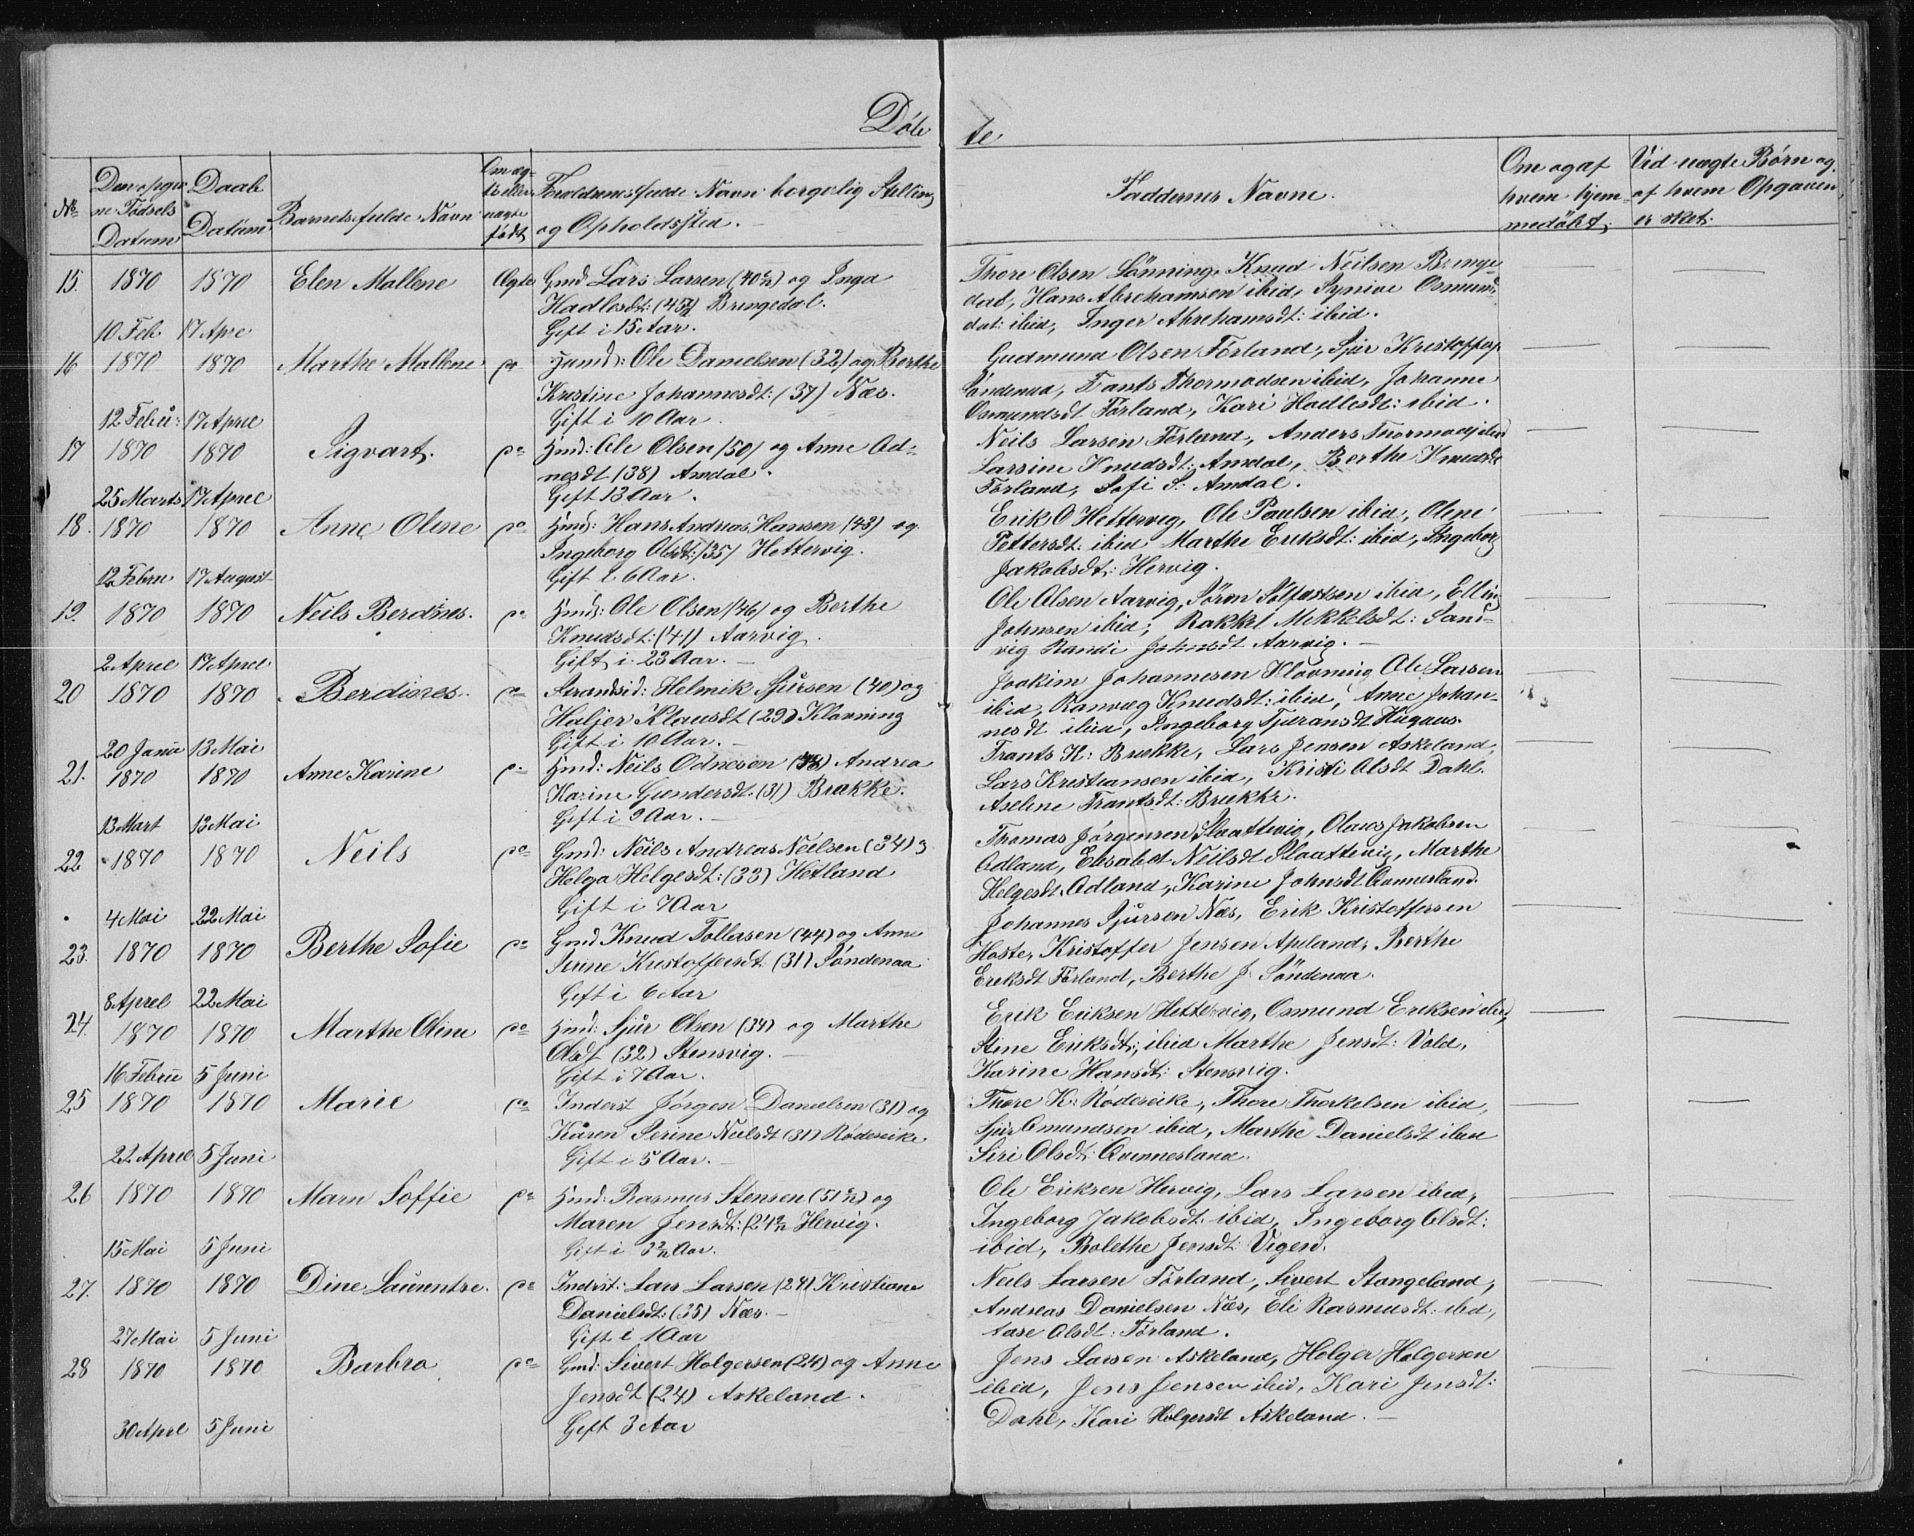 Døb te
No.
Den opgivne Fødsels Datum
Daab Datum
Barnets fulde Navn
Om ægte eller uægte født
Forældrenes fulde Navn borgelig Stilling
og Opholdssted.
Faddernes Navne.
Om og af hvem hjemmedøbt.
Vid uægte Børn og af hvem Opgaven er sket.
15. 1870 1870 Elen Mallene Ægte Gmd Lars Larsen (40½) og Inga
Hadlesdt: Bringedal.
10 Feb 17 Apre Gift i 15 Aar.
Thore Olsen Lönning, Knud Neilsen Bringe-
dal, Hans Abrehamsen ibid, Synive Osmunds-
dat: ibid, Inger Abrehamsdt: ibid.
16 1870 1870 Marthe Mallene do Husmd: Ole Danielsen (32) og Berthe
Kristine Johannesdt: (37) Næs.
12 Febru: 17 Aprel Gift i 10 Aar.
Gudmund Olsen Förland, Sjur Kristoffers
Söndenaa, Frants Thormodsen ibid, Johanne
Osmundsdt Förland, Kari Hadlesdt: ibid.
17 1870 1870 Sigvart. do Hmd: Ole Olsen (50) og Anne Od-
nesdt (38) Amdal.
25 Marts 17 Aprel Gift 13 Aar.
Neils Larsen Förland, Anders Thormodsen
Larsine Knudsdt: Amdal, Berthe Knudsdt
Förland, Sofi S: Amdal.
18. 1870 1870 Anne Oline do Hmd: Hans Andreas Hansen (43) og
Ingeborg Olsdt: (35) Hettervig.
12 Febru 17 August Gift i 6 Aar.
Erik O Hettervig, Ole Paulsen ibid, Oline
Pettersdt: ibid Marthe Eriksdt: ibid, Ingeborg
Jakobsdt: Hervig.
19. 1870 1870 Neils Berdines. do Hmd: Ole Olsen (46) og Berthe
Knudsdt: (41) Aarvig.
2 Aprel 17 Aprel Gift i 23 Aar.
Ole Olsen Aarvig, Sören Solfæstsen ibid, Elling
Johnsen ibid, Rakkel Mikkelsdt: Sand-
vig Randi Johnsdt Aarvig.
20 1870 1870 Berdines. do Strandsid: Helmik Sjursen (40) og
Haljer Klausdt (29) Klovning
20 Janu 13 Mai Gift i 10 Aar.
Joakim Johannesen Klovning Ole Larsen
ibid, Ranvæg Knudsdt: ibid, Anne Johan-
nesdt ibid, Ingeborg Tjeransdt
21. 1870 1870 Anne Karine do Hmd: Neils Odnesen Andrea
Karine Gundersdt: (31) Brække.
13 Mart 13 Mai Gift i 9 Aar.
Frants H: Brække, Lars Jensen Askeland,
Lars Kristiansen ibid, Kristi Olsdt Dahl.
Aseline Frantsdt: Brække.
22 1870 1870 Neils do Gmd: Neils Andreas Neilsen (34)
Helga Helgesdt: (33) Hetland
4 Mai 22 Mai Gift i 7 Aar
Thomas Jörgensen Slaattevig, Olaves Jakobsen
Odland, Elisabet Neilsdt Slaattevig, Marthe
Helgesdt Odland, Karine Johnsdt Qvinnesland.
23. 1870 1870 Berthe Sofie do Gmd Knud Tollefsen (44) og Anne
Serine Kristoffersdt: (31) Söndenaa
8 Aprel 22 Mai Gift i 6 Aar
Johannes Sjursen Næs, Erik Kristoffersen
Hoste, Kristoffer Jensen Apeland, Berthe
Ereksdt Förland, Berthe J. Söndenaa.
24. 1870 1870 Marthe Oline do Hmd: Sjur Olsen (34) og Marthe
Olsdt (32) Stensvig.
16 Febru 5 Juni Gift i 7 Aar.
Erik Eriksen Hettervig, Osmund Eriksen ibid,
Stine Eriksdt: ibid Marthe Jensdt: Vold,
Karine Hansdt: Stensvig.
25 1870 1870 Marie do Inderst Jörgen Danielsen (31) og
Karen Serine Neilsdt (31) Rödeseike
22 Aprel 5 Juni Gift i 5 Aar.
Thore K: Rödeseike, Thore Thorkelsen ibid,
Sjur Omundsen ibid, Marthe Danielsdt ibid
Siri Olsdt: Qvinnesland.
26 1870 1870 Marn Soffie do Hmd: Rasmus Stensen (51½) og
Maren Jensdt: (24½ Hervig.
15 Mai 5 Juni Gift i Aar.
Ole Eriksen Hervig, Lars Larsen ibid,
Ingeborg Jakobsdt. ibid, Ingeborg Olsdt:
ibid, Bolethe Jensdt: Vigerd.
27. 1870 1870 Dine Laurentse. do Indrst: Lars Larsen (24) Kristiane
Danielsdt: (35) Næs.
27 Mai 5 Juni Gift i 1 Aar
Neils Larsen Förland, Sivert Stangeland,
Andreas Danielsen Næs, Eli Rasmusdt: ibid,
Aase Olsdt: Förland.
28 1870 1870 Barbro do Gmd: Sivert Holgersen (24) og Anne
Jensdt (24) Askeland.
30 Aprl 5 Juni Gift 3 Aar
Jens Larsen Askeland, Holger Holgersen
ibid, Jens Jensen ibid, Kari Jensdt:
Dahl, Kari Holgersdt Askeland.